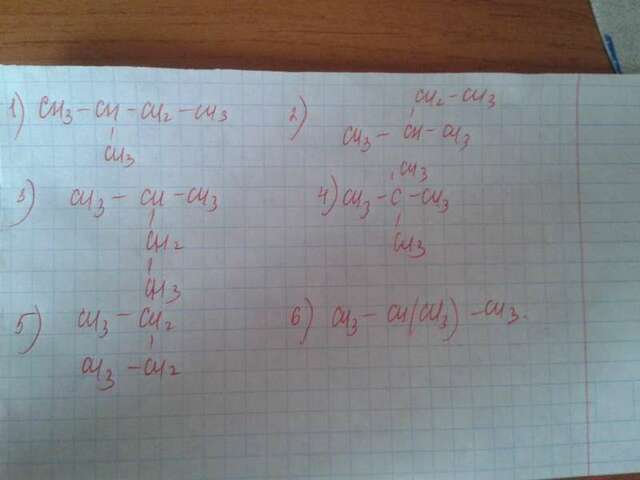 1) CH3 - CH - CH2 - CH3
CH3
2) CH2 - CH3
CH3 - CH - CH3
3) CH3 - CH - CH3
CH2
CH3
4) CH3
CH3 - C - CH3
CH3
5) CH3 - CH2
CH3 - CH2
6) CH3 - CH(CH3) - CH3.